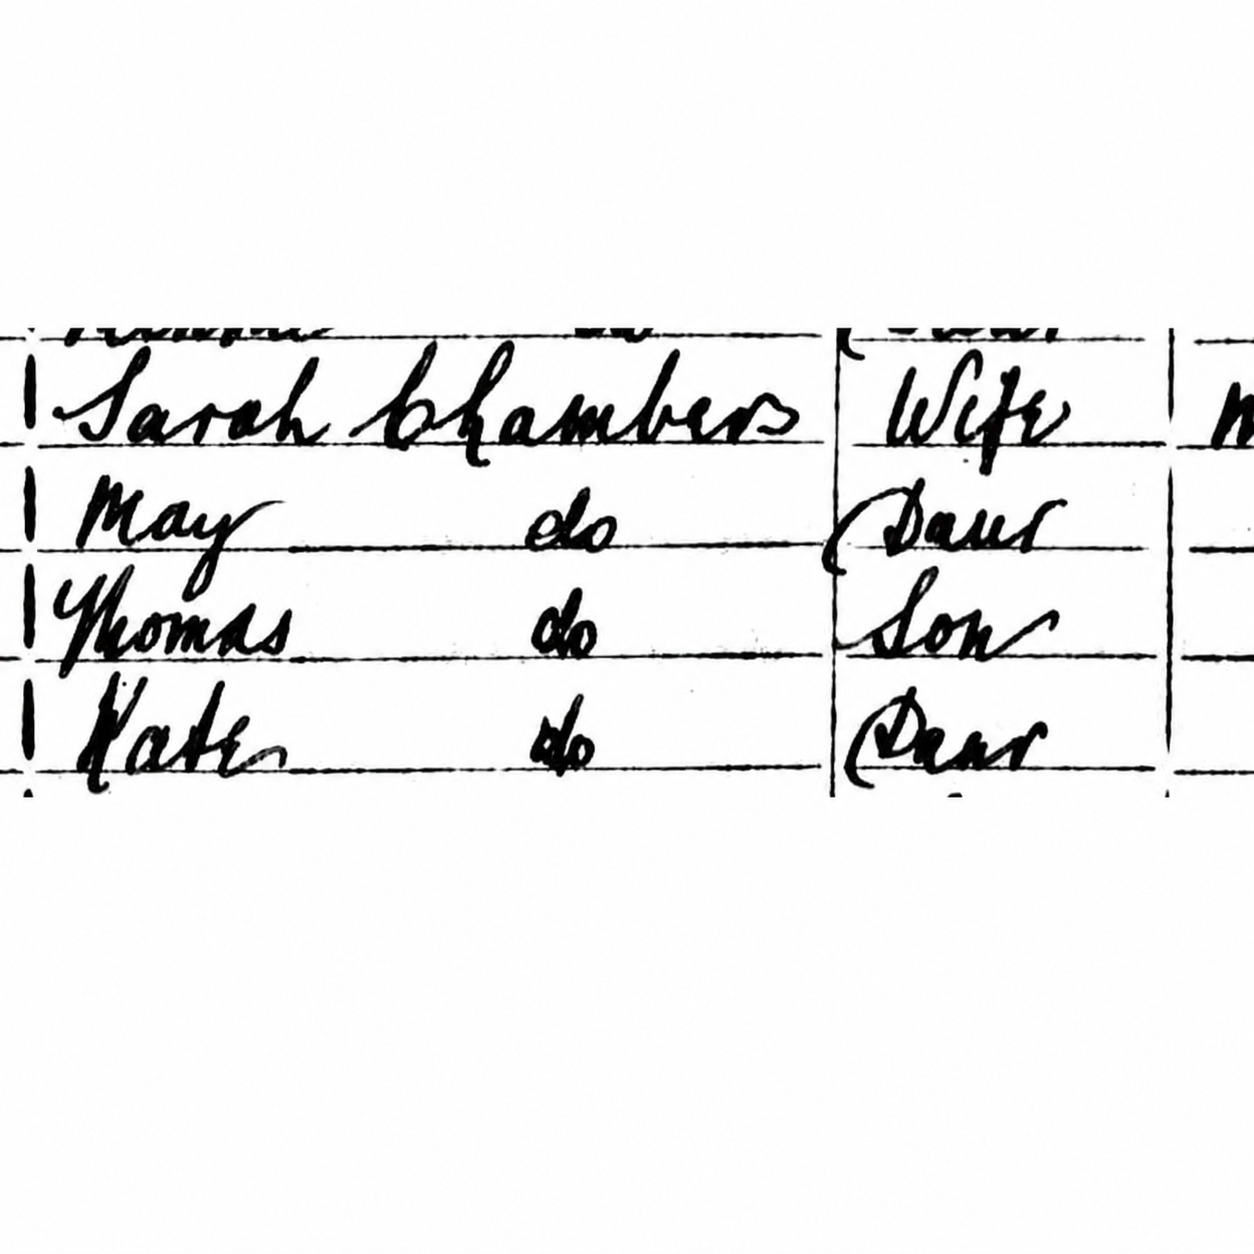 Sarah Chambers Wife
May do Daur
Thomas do Son
Kate do Daur